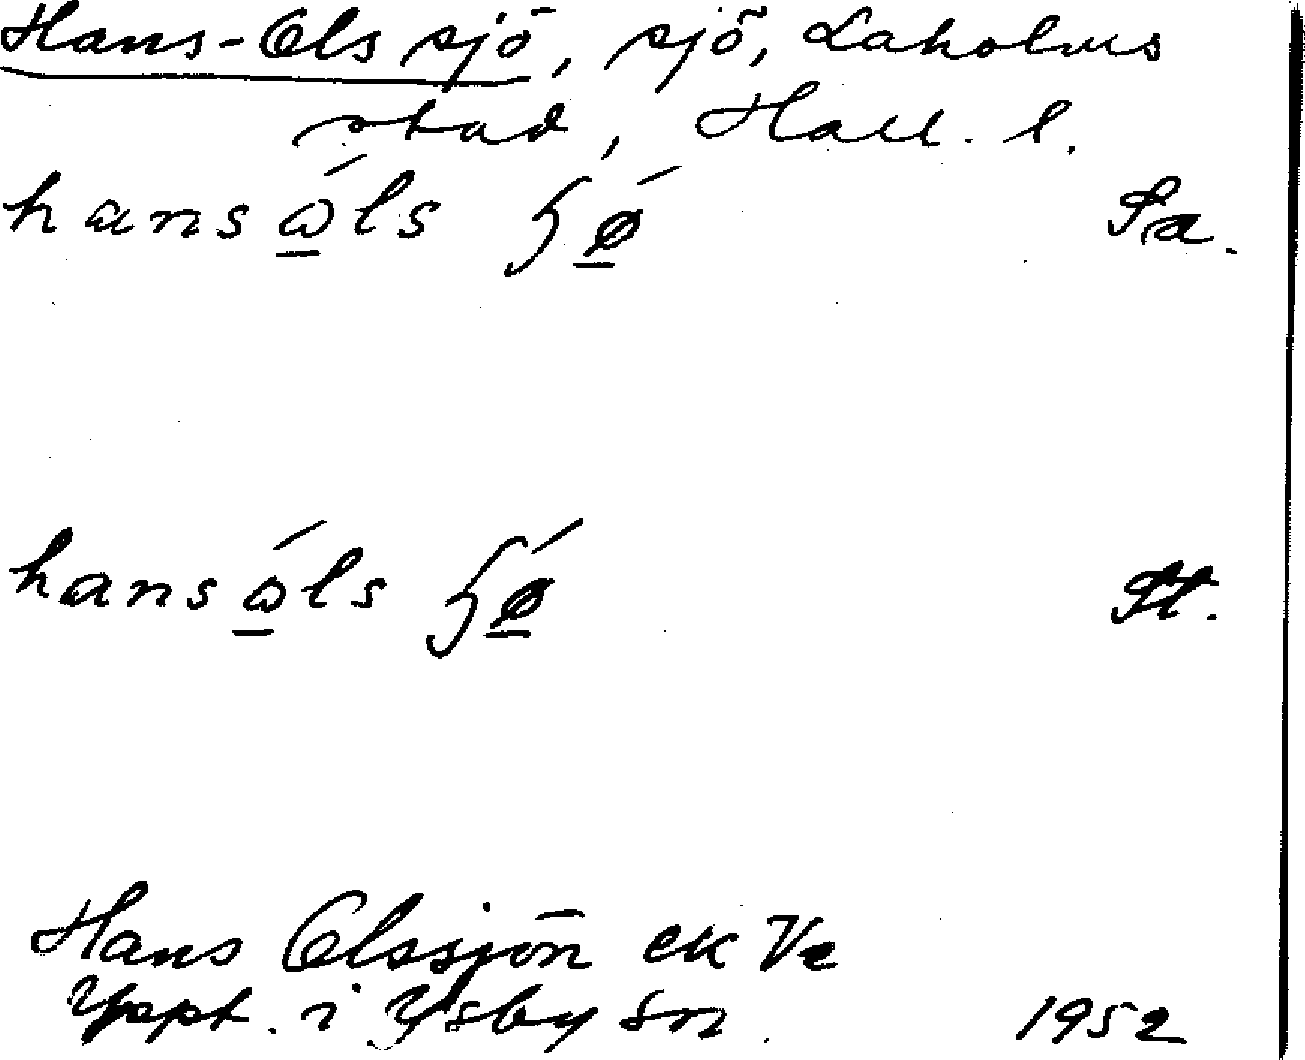 Hans-Ols sjö, sjö, Laholms
stad, Hall. l.
hansώ̲ls ɧǿ̲ Sa.
hansώ̲ls ɧǿ̲ St.
Hans Olssjön ek Ve
Uppt. i Ysby sn. 1952